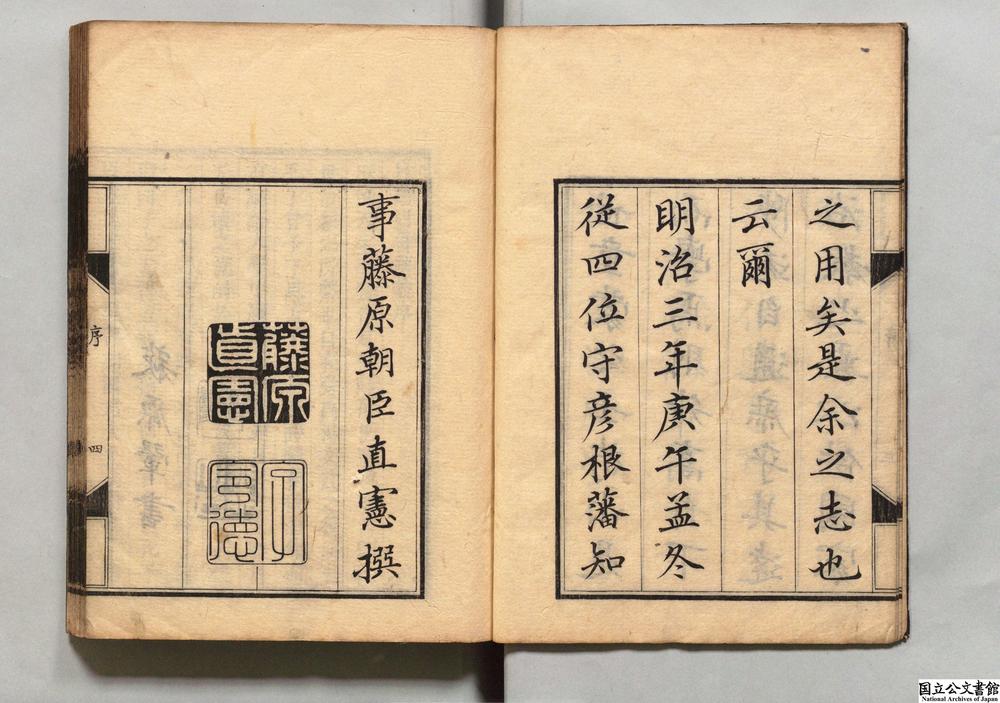 之用矣是余之志也
云爾
明治三年庚午孟冬
従四位守彦根藩知
事藤原朝臣直憲撰
藤原直憲
序
四
国立公文書館
National Archives of Japan